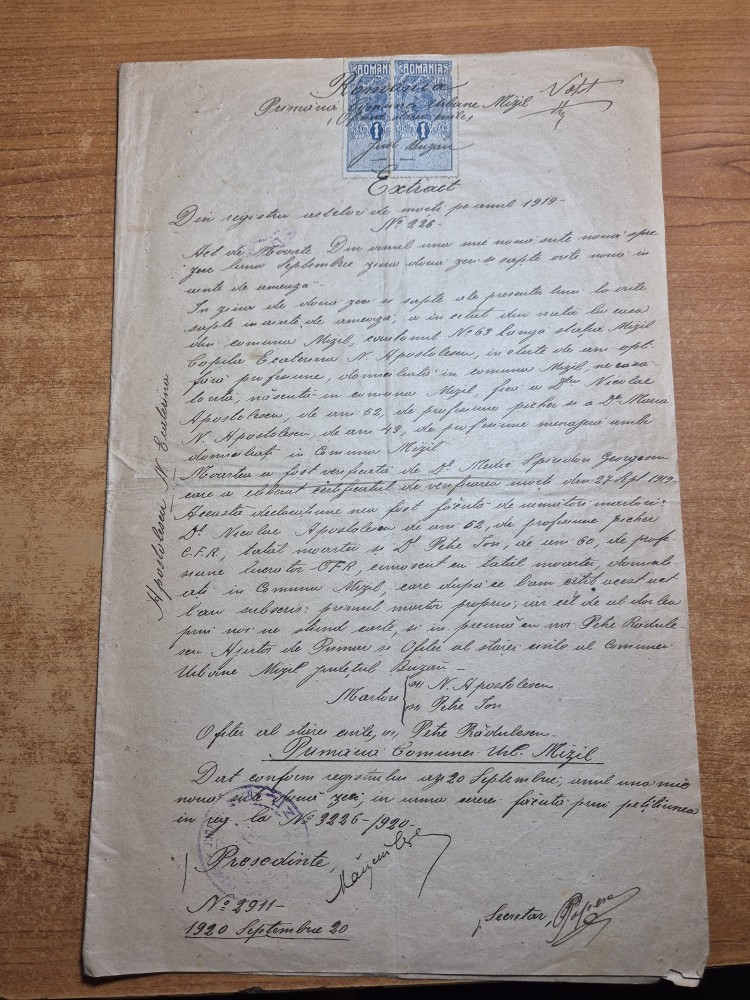 ROMANIA ROMANIA
1 1
România
Primăria comunei Urbane Mizil
Ofițerul stărei civile
Jud. Buzău
Extract
Din registru actelor de morți pe anul 1919-
No 226-
Act de Moarte. Din anul una mie nouă sute nouă spre
zece luna Septembre ziua două zeci și șapte orele nouă în
ainte de ameaza-
In ziua de două zeci și șapte ale presentei luni la orele
șapte inainte de ameaza, a incetat din viață la casa
din comuna Mizil, cantonul No 63 langa stația Mizil
Copila Ecaterina N. Apostolescu, in etate de ani opt
fără profesiune, domiciliată in comuna Mizil, necăsă-
torită, născută in comuna Mizil, fiică a Dlui Nicolae
Apostolescu, de ani 52, de profesiune picher și a Dnei Maria
N. Apostolescu, de ani 43, de profesiune menajera ambii
domiciliați in Comuna Mizil
Moartea a fost verificată de Dl Medic Spiridon Georgescu
care a eliberat certificatul de verificarea morței din 27 Sept 1919.
Aceasta declarațiune nea fost făcută de următorii martori:
Dl Nicolae Apostolescu de ani 52, de profesiune picher
C.F.R, tatăl moartei și Dl Petre Ion, de ani 60, de profe-
siune lucrator C.F.R, cunoscut cu tatăl moartei, domicili-
ați in Comuna Mizil, care după ce leam citit acest act
l'au subscris: primul martor propriu, iar cel de al doilea
prin noi ne stiind carte, și in preună cu noi Petre Rădule-
scu Ajutor de Primar și Ofițer al stărei civile al Comunei
Urbane Mizil județul Buzău-
Martori ss N. Apostolescu
ss Petre Ion
Ofițer al stărei civile, ss, Petre Rădulescu.
Apostolescu N. Ecaterina
Primăria Comunei Urb. Mizil
Dat conform registrului azi 20 Septembre, anul una mie
nouă sute două zeci, in urma cerere făcută prin petițiunea
in reg. la No 3226-/920-
Președinte,
Secretar,
No 2911-
1920 Septembrie 20